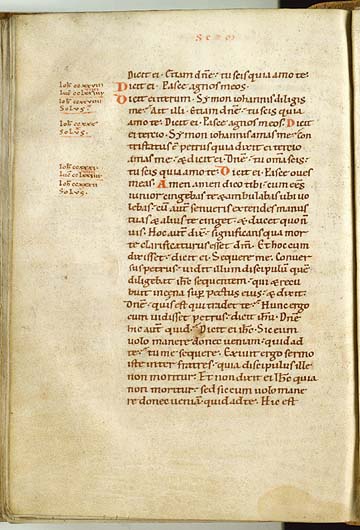 Dicit ei. Etiam dñe. tu scis quia amo te.
Dicit ei. Pasce agnos meos.
Dicit ei iterum. Symon iohannis diligis
me. Ait illi. Etiam dñe. tu scis quia
amo te. Dicit ei. Pasce agnos meos. Dicit
ei tercio. Symon iohannis amas me. con
tristatus ē petrus quia dixit ei tercio
amas me. & dicit ei. Dñe. tu omia scis.
tu scis quia amo te. Dicit ei. Pasce oves
meas. Amen amen dico tibi. cum eēs
iunior cingebas te & ambulabas ubi vo
lebas. cū autē senueris extendes manus
tuas & alius te cinget. & ducet quo n̄
vis. Hoc autē dix̄. significans qua mor
te clarificaturus esset dm̄. Et hoc cum
dixisset. dicit ei. Sequere me. Conver
sus petrus. vidit illum discipulū quē
diligebat ihc̄ sequentem. qui & recu
buit in cena sup̄ pectus eius. & dixit.
Dñe. quis est qui tradet te. Hunc ergo
cum vidisset petrus. dicit ihu. Dñe
hic autē quid. Dicit ei ihc̄. Sic eum
volo manere donec veniam. quid ad
te. tu me sequere. Exivit ergo sermo
iste inter fratres. quia discipulus ille
non moritur. Et non dixit ei ihc̄ quia
non moritur. sed sic eum volo mane
re donec veniā. quid ad te. Hic est
Solus.
Solus.
Solus.